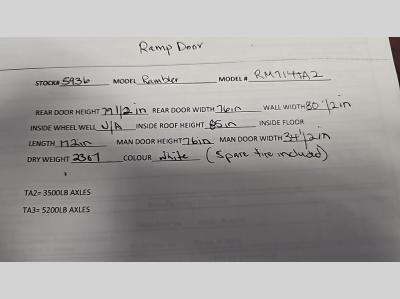 Ramp Door
STOCK# 5936 MODEL Rambler MODEL # RM714TA2
REAR DOOR HEIGHT 77 1/2 in REAR DOOR WIDTH 76in WALL WIDTH 80 1/2in
INSIDE WHEEL WELL N/A INSIDE ROOF HEIGHT 85in INSIDE FLOOR
LENGTH 172in MAN DOOR HEIGHT 76in MAN DOOR WIDTH 34 1/2in
DRY WEIGHT 2367 COLOUR white (Spare tire included)
TA2= 3500LB AXLES
TA3= 5200LB AXLES